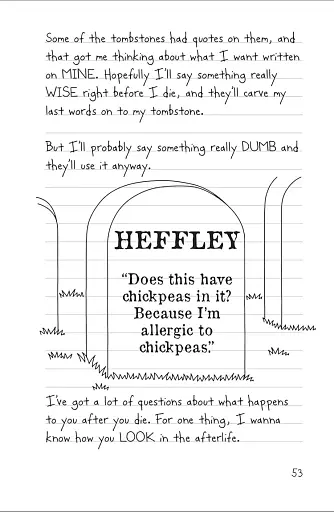 Some of the tombstones had quotes on them, and
that got me thinking about what I want written
on MINE. Hopefully I'll say something really
WISE right before I die, and they'll carve my
last words on to my tombstone.
But I'll probably say something really DUMB and
they'll use it anyway.
HEFFLEY
"Does this have
chickpeas in it?
Because I'm
allergic to
chickpeas."
I've got a lot of questions about what happens
to you after you die. For one thing, I wanna
know how you LOOK in the afterlife.
53